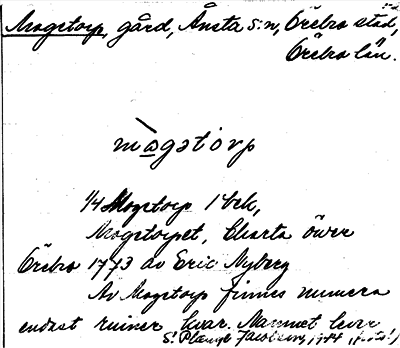 Mogetorp, gård, Ånsta s:n, Örebro stad,
Örebro län.
mògətorp
1/4 Mogetorp 1 bek,
Mogetorpet, Charta öwer
Örebro 1773 av Eric Nyberg
Av Mogetorp finnes numera
endast ruiner kvar. Namnet lever